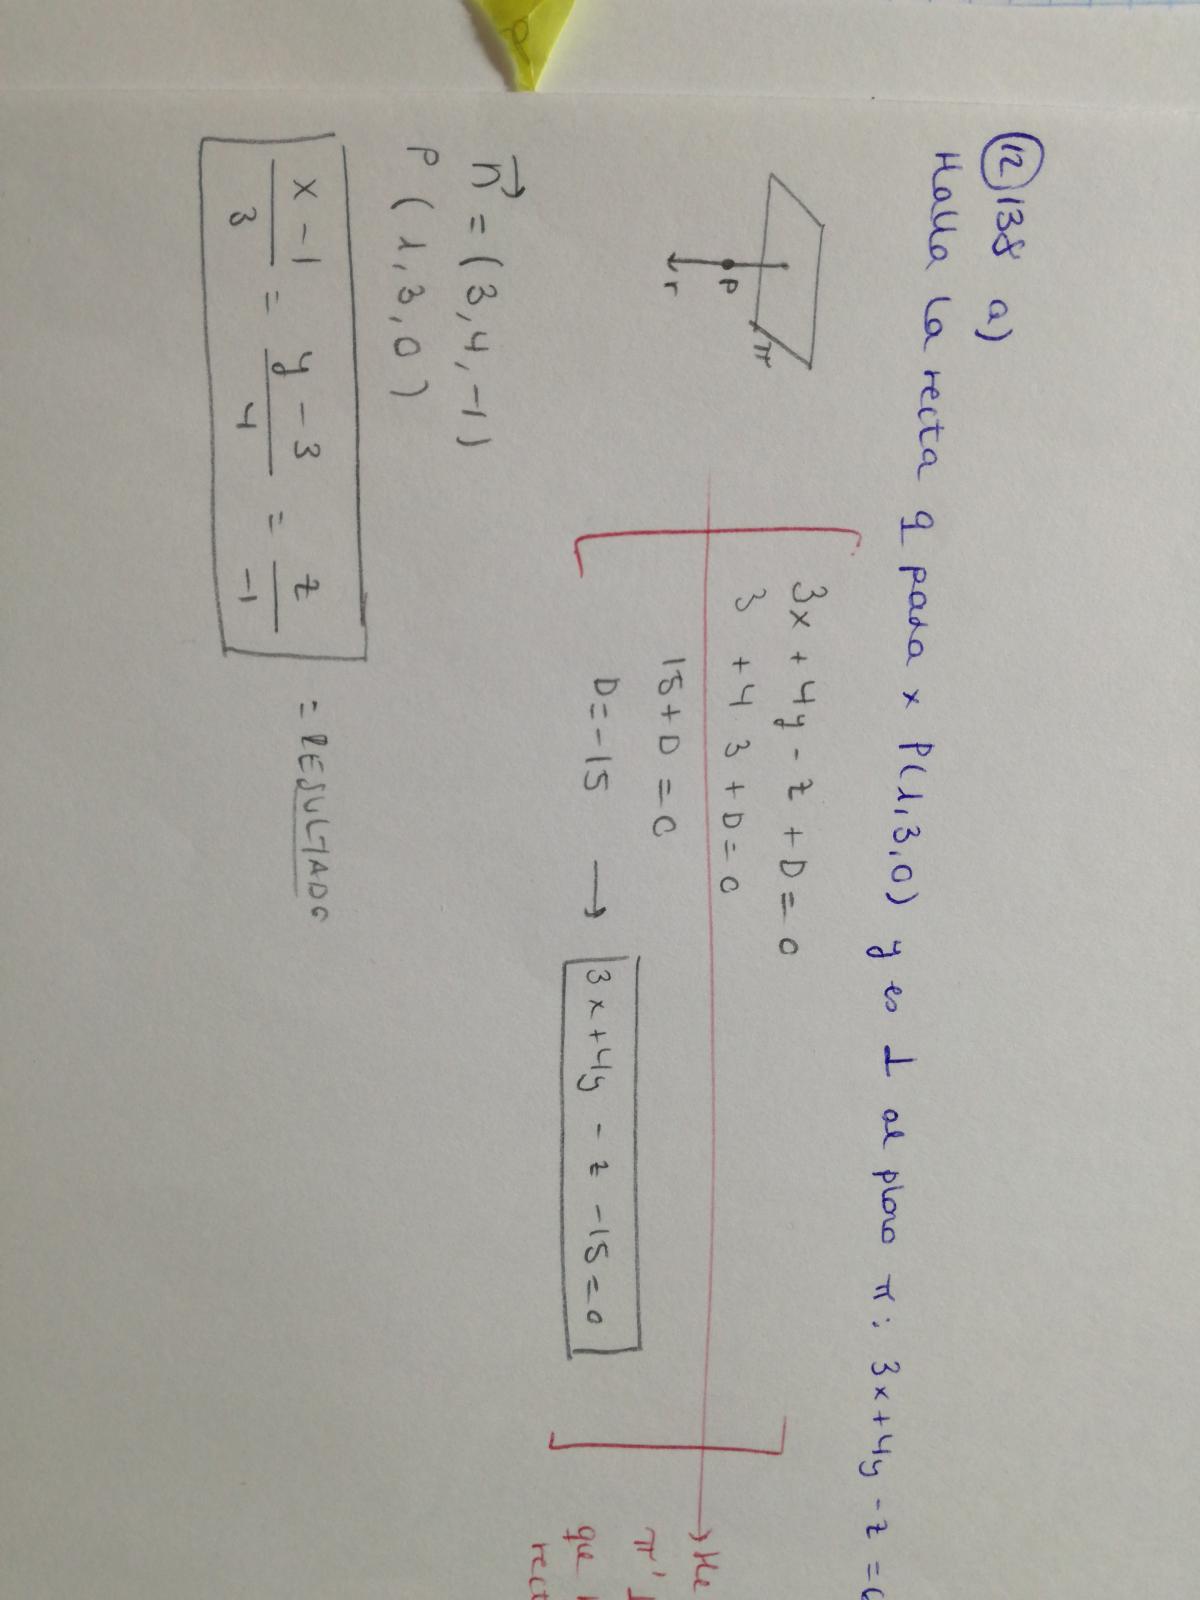 12 138 a)
Halla la recta q pasa x P(1,3,0) y es ⊥ al plano π: 3x+4y-z=6
π
P
r
3x+4y-z+D=0
3 +4 3+D=0
15+D=0
D=-15 → 3x+4y-z-15=0
→He
π'
que
rect
n⃗=(3,4,-1)
P(1,3,0)
x-1/3 = y-3/4 = z/-1 = RESULTADO